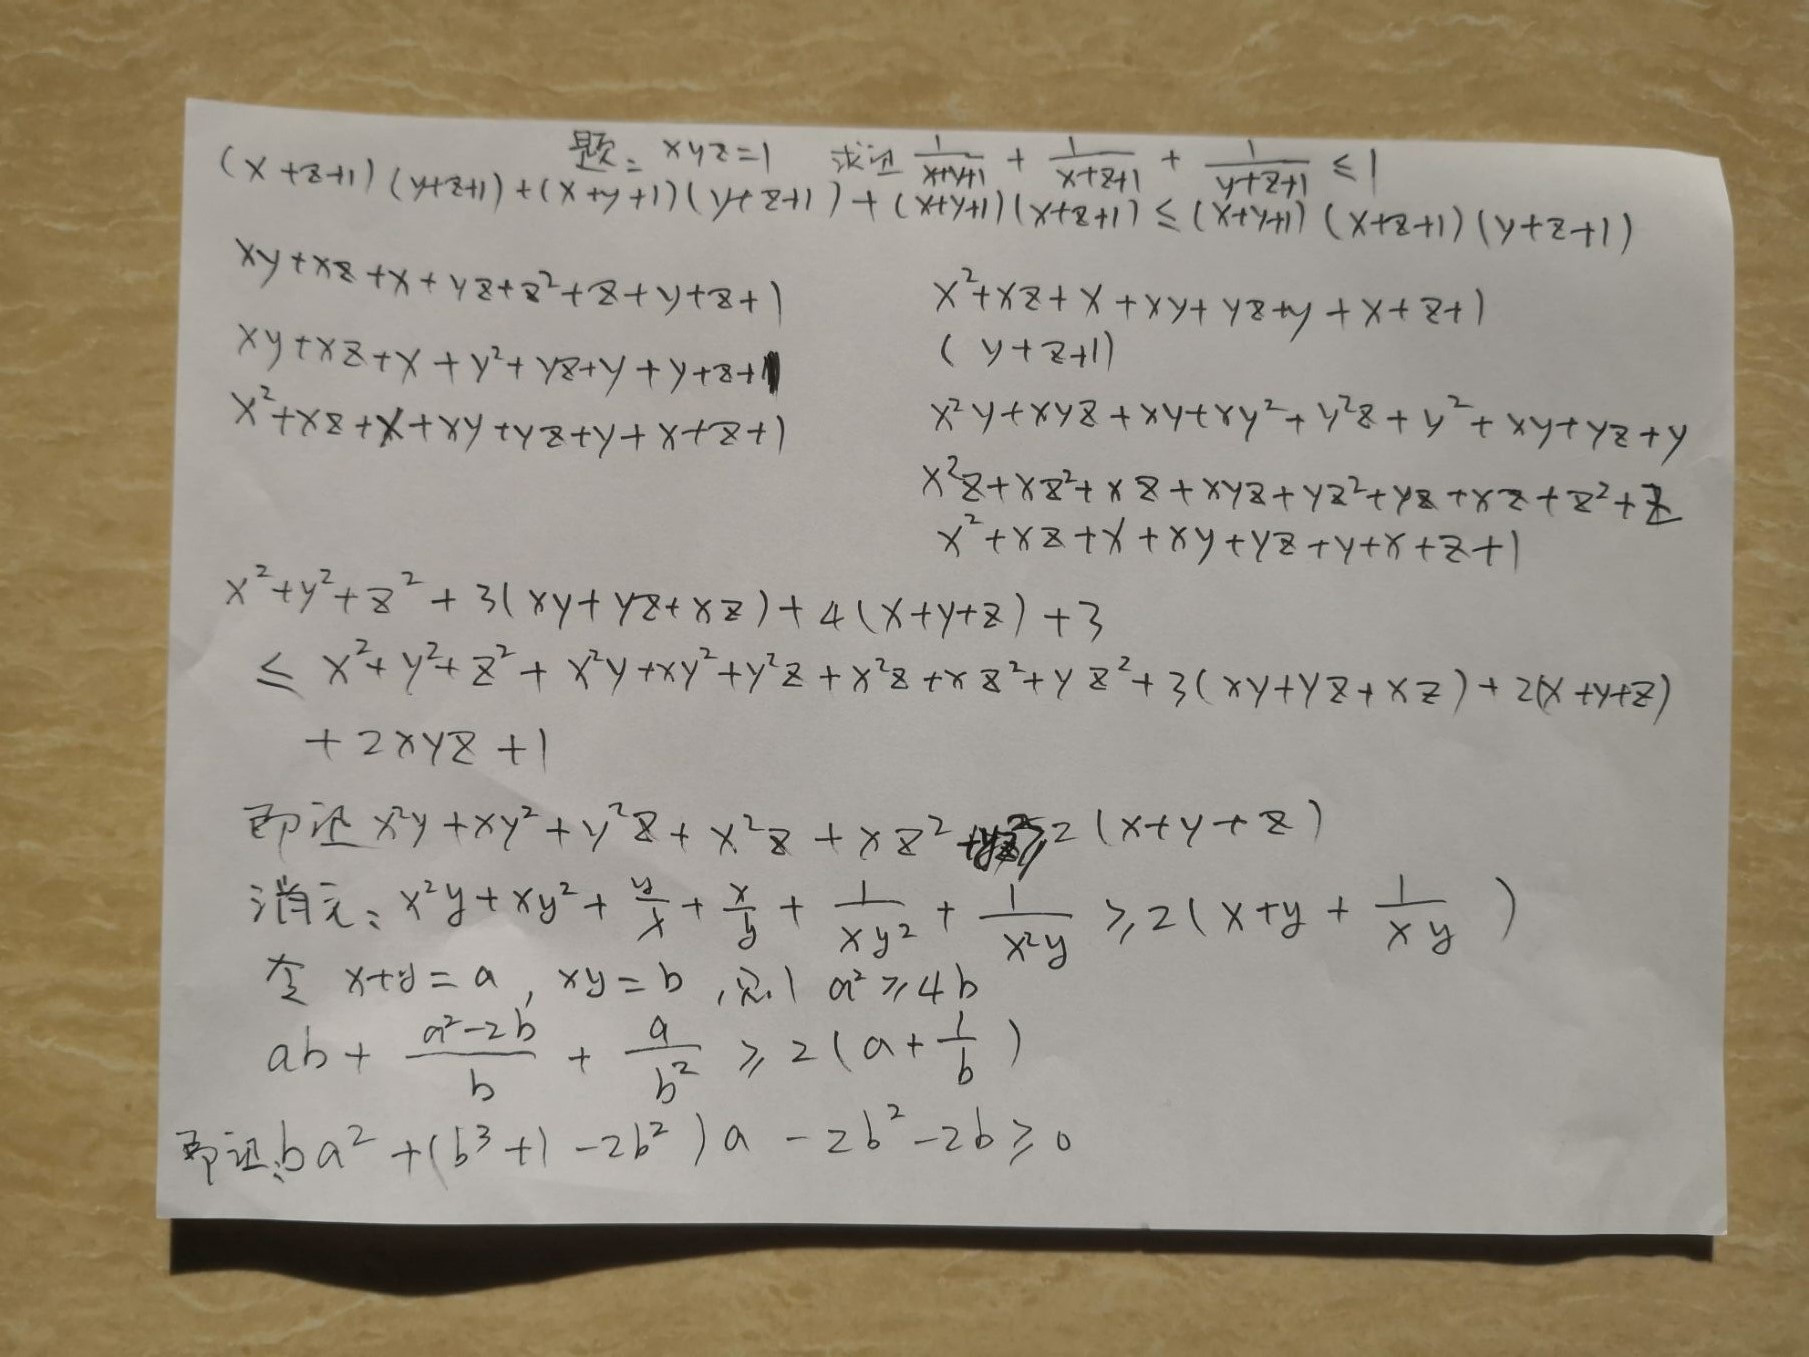 题: xyz=1 求证 1/(x+y+1) + 1/(x+z+1) + 1/(y+z+1) ≤ 1
(x+z+1)(y+z+1)+(x+y+1)(y+z+1)+(x+y+1)(x+z+1) ≤ (x+y+1)(x+z+1)(y+z+1)
xy+xz+x+yz+z²+z+y+z+1
xy+xz+x+y²+yz+y+y+z+1
x²+xz+x+xy+yz+y+x+z+1
x²+xz+x+xy+yz+y+x+z+1
(y+z+1)
x²y+xyz+xy+xy²+y²z+y²+xy+yz+y
x²z+xz²+xz+xyz+yz²+yz+xz+z²+z
x²+xz+x+xy+yz+y+x+z+1
x²+y²+z²+3(xy+yz+xz)+4(x+y+z)+3
≤ x²+y²+z²+x²y+xy²+y²z+x²z+xz²+yz²+3(xy+yz+xz)+2(x+y+z)
+2xyz+1
即证 x²y+xy²+y²z+x²z+xz²+yz² ≥ 2(x+y+z)
消元: x²y+xy²+y/x+x/y+1/(xy²)+1/(x²y) ≥ 2(x+y+1/(xy))
令 x+y=a, xy=b, 则 a²≥4b
ab+(a²-2b)/b+a/b² ≥ 2(a+1/b)
即证: ba²+(b³+1-2b²)a-2b²-2b≥0